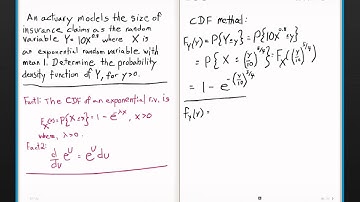 An actuary models the size of
insurance claims as the random
variable Y = 10X^0.8 where X is
an exponential random variable with
mean 1. Determine the probability
density function of Y, for y>0.
Fact1: The CDF of an exponential r.v. is
F_X(x)=P{X≤x}=1-e^{-λx}, x>0
where, λ>0.
Fact2:
d/du e^u = e^u du
CDF method:
F_Y(y)=P{Y≤y}=P{10X^0.8≤y}
=P{X≤(y/10)^{5/4}}=F_X((y/10)^{5/4})
=1-e^{-(y/10)^{5/4}}
f_Y(y)=